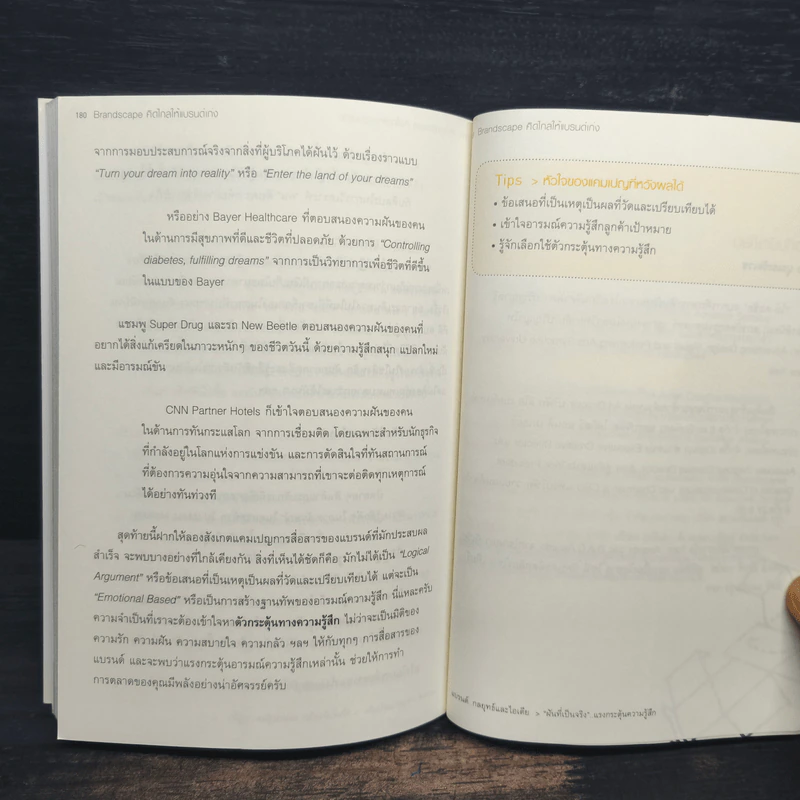 180 Brandscape คิดไกลให้แบรนด์เก่ง
จากการมอบประสบการณ์จริงจากสิ่งที่ผู้บริโภคใฝ่ฝันไว้ ด้วยเรื่องราวแบบ
“Turn your dream into reality” หรือ “Enter the land of your dreams”
หรืออย่าง Bayer Healthcare ที่ตอบสนองความฝันของคน
ในด้านการมีสุขภาพที่ดีและชีวิตที่ปลอดภัย ด้วยการ “Controlling
diabetes, fulfilling dreams” จากการเป็นวิทยาการเพื่อชีวิตที่ดีขึ้น
ในแบบของ Bayer
แชมพู Super Drug และรถ New Beetle ตอบสนองความฝันของคนที่
อยากได้สิ่งแก้เครียดในภาวะหนักๆ ของชีวิตวันนี้ ด้วยความรู้สึกสนุก แปลกใหม่
และมีอารมณ์ขัน
CNN Partner Hotels ก็เข้าใจตอบสนองความฝันของคน
ในด้านการทันกระแสโลก จากการเชื่อมติด โดยเฉพาะสำหรับนักธุรกิจ
ที่กำลังอยู่ในโลกแห่งการแข่งขัน และการตัดสินใจที่ทันสถานการณ์
ที่ต้องการความอุ่นใจจากความสามารถที่เขาจะต่อติดทุกเหตุการณ์
ได้อย่างทันท่วงที
สุดท้ายนี้ฝากให้ลองสังเกตแคมเปญการสื่อสารของแบรนด์ที่มักประสบผล
สำเร็จ จะพบบางอย่างที่ใกล้เคียงกัน สิ่งที่เห็นได้ชัดก็คือ มักไม่ได้เป็น “Logical
Argument” หรือข้อเสนอที่เป็นเหตุเป็นผลที่วัดและเปรียบเทียบได้ แต่จะเป็น
“Emotional Based” หรือเป็นการสร้างฐานทัพของอารมณ์ความรู้สึก นี่แหละครับ
ความจำเป็นที่เราจะต้องเข้าใจหาตัวกระตุ้นทางความรู้สึก ไม่ว่าจะเป็นมิติของ
ความรัก ความฝัน ความสบายใจ ความกลัว ฯลฯ ให้กับทุกๆ การสื่อสารของ
แบรนด์ และจะพบว่าแรงกระตุ้นอารมณ์ความรู้สึกเหล่านั้น ช่วยให้การทำ
การตลาดของคุณมีพลังอย่างน่าอัศจรรย์ครับ
Brandscape คิดไกลให้แบรนด์เก่ง
Tips > หัวใจของแคมเปญที่หวังผลได้
• ข้อเสนอที่เป็นเหตุเป็นผลที่วัดและเปรียบเทียบได้
• เข้าใจอารมณ์ความรู้สึกลูกค้าเป้าหมาย
• รู้จักเลือกใช้ตัวกระตุ้นทางความรู้สึก
แบรนด์ กลยุทธ์และไอเดีย > “ฝันที่เป็นจริง” แรงกระตุ้นความรู้สึก